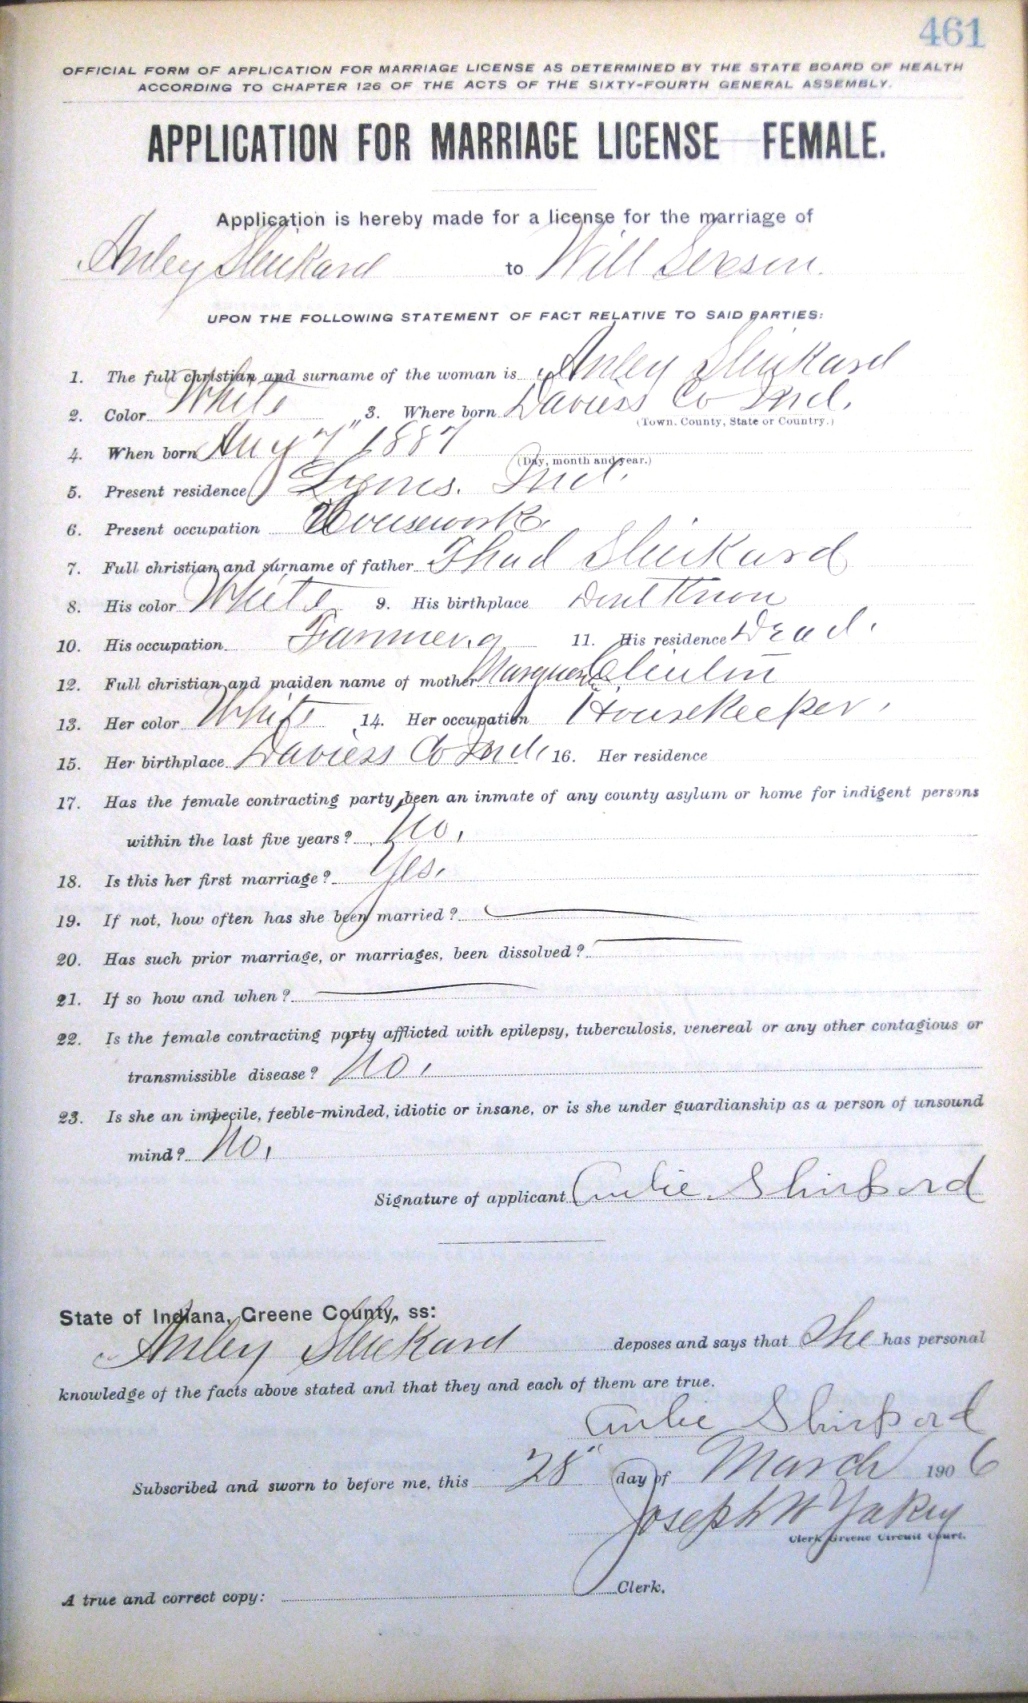 461
OFFICIAL FORM OF APPLICATION FOR MARRIAGE LICENSE AS DETERMINED BY THE STATE BOARD OF HEALTH
ACCORDING TO CHAPTER 126 OF THE ACTS OF THE SIXTY-FOURTH GENERAL ASSEMBLY.
APPLICATION FOR MARRIAGE LICENSE—FEMALE.
Application is hereby made for a license for the marriage of
Anley Shickard to Will
UPON THE FOLLOWING STATEMENT OF FACT RELATIVE TO SAID PARTIES:
1. The full christian and surname of the woman is Anley Shickard
2. Color White 3. Where born Daviess Co Ind.
(Town, County, State or Country.)
4. When born Aug 7" 1887
(Day, month and year.)
5. Present residence Lyons. Ind.
6. Present occupation Housework
7. Full christian and surname of father Thad Shickard
8. His color White 9. His birthplace Dont Know
10. His occupation Farmer 11. His residence Dead.
12. Full christian and maiden name of mother
13. Her color White 14. Her occupation Housekeeper.
15. Her birthplace Daviess Co Ind. 16. Her residence
17. Has the female contracting party been an inmate of any county asylum or home for indigent persons
within the last five years? No.
18. Is this her first marriage? Yes.
19. If not, how often has she been married?
20. Has such prior marriage, or marriages, been dissolved?
21. If so how and when?
22. Is the female contracting party afflicted with epilepsy, tuberculosis, venereal or any other contagious or
transmissible disease? No.
23. Is she an imbecile, feeble-minded, idiotic or insane, or is she under guardianship as a person of unsound
mind? No.
Signature of applicant
State of Indiana, Greene County, ss:
Anley Shickard deposes and says that She has personal
knowledge of the facts above stated and that they and each of them are true.
Subscribed and sworn to before me, this 28" day of March 1906
Joseph W Yakey
Clerk Greene Circuit Court.
A true and correct copy: Clerk.